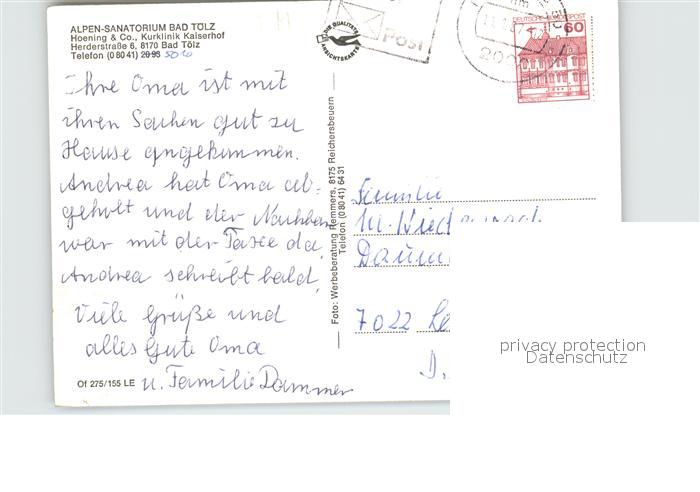 ALPEN-SANATORIUM BAD TÖLZ
Hoening & Co., Kurklinik Kaiserhof
Herderstraße 6, 8170 Bad Tölz
Telefon (0 80 41) 20 93 5010
Ihre Oma ist mit
ihren Sachen gut zu
Hause angekommen.
Andrea hat Oma ab-
geholt und der Nachbar
war mit der Tasce da,
Andrea schreibt bald,
Viele Grüße und
alles Gute Oma
u. Familie Dammer
Of 275/155 LE
Foto: Werbeberatung Remmers, 8175 Reichersbeuern
Telefon (0 80 41) 64 31
DIE QUALITÄTS
ANSICHTSKARTE
POST
DEUTSCHE BUNDESPOST
60
Familie
7022
privacy protection
Datenschutz